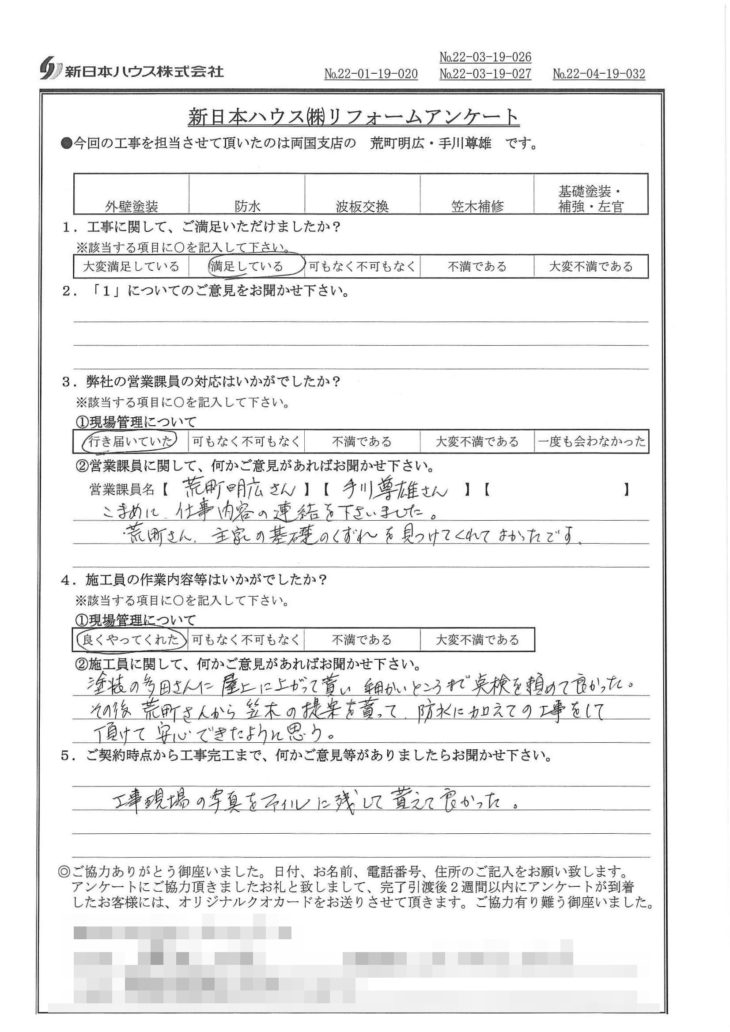 新日本ハウス株式会社
№22-01-19-020
№22-03-19-026
№22-03-19-027
№22-04-19-032
新日本ハウス㈱リフォームアンケート
●今回の工事を担当させて頂いたのは両国支店の 荒町明広・手川尊雄 です。
外壁塗装 防水 波板交換 笠木補修 基礎塗装・補強・左官
1．工事に関して、ご満足いただけましたか？
※該当する項目に○を記入して下さい。
大変満足している 満足している 可もなく不可もなく 不満である 大変不満である
2．「1」についてのご意見をお聞かせ下さい。
3．弊社の営業課員の対応はいかがでしたか？
※該当する項目に○を記入して下さい。
①現場管理について
行き届いていた 可もなく不可もなく 不満である 大変不満である 一度も会わなかった
②営業課員に関して、何かご意見があればお聞かせ下さい。
営業課員名【 荒町明広さん 】【 手川尊雄さん 】【 】
こまめに、仕事内容の連結を下さいました。
荒町さん、主家の基礎のくずれを見つけてくれてよかったです。
4．施工員の作業内容等はいかがでしたか？
※該当する項目に○を記入して下さい。
①現場管理について
良くやってくれた 可もなく不可もなく 不満である 大変不満である
②施工員に関して、何かご意見があればお聞かせ下さい。
塗装の多田さんに屋上に上がって貰い 細かいところまで点検を頼めて良かった。
その後荒町さんから笠木の提案を貰って、防水に加えての工事をして
頂けて安心できたように思う。
5．ご契約時点から工事完工まで、何かご意見等がありましたらお聞かせ下さい。
工事現場の写真をファイルに残して貰えて良かった。
◎ご協力ありがとう御座いました。日付、お名前、電話番号、住所のご記入をお願い致します。
アンケートにご協力頂きましたお礼と致しまして、完了引渡後2週間以内にアンケートが到着
したお客様には、オリジナルクオカードをお送りさせて頂きます。ご協力有り難う御座いました。